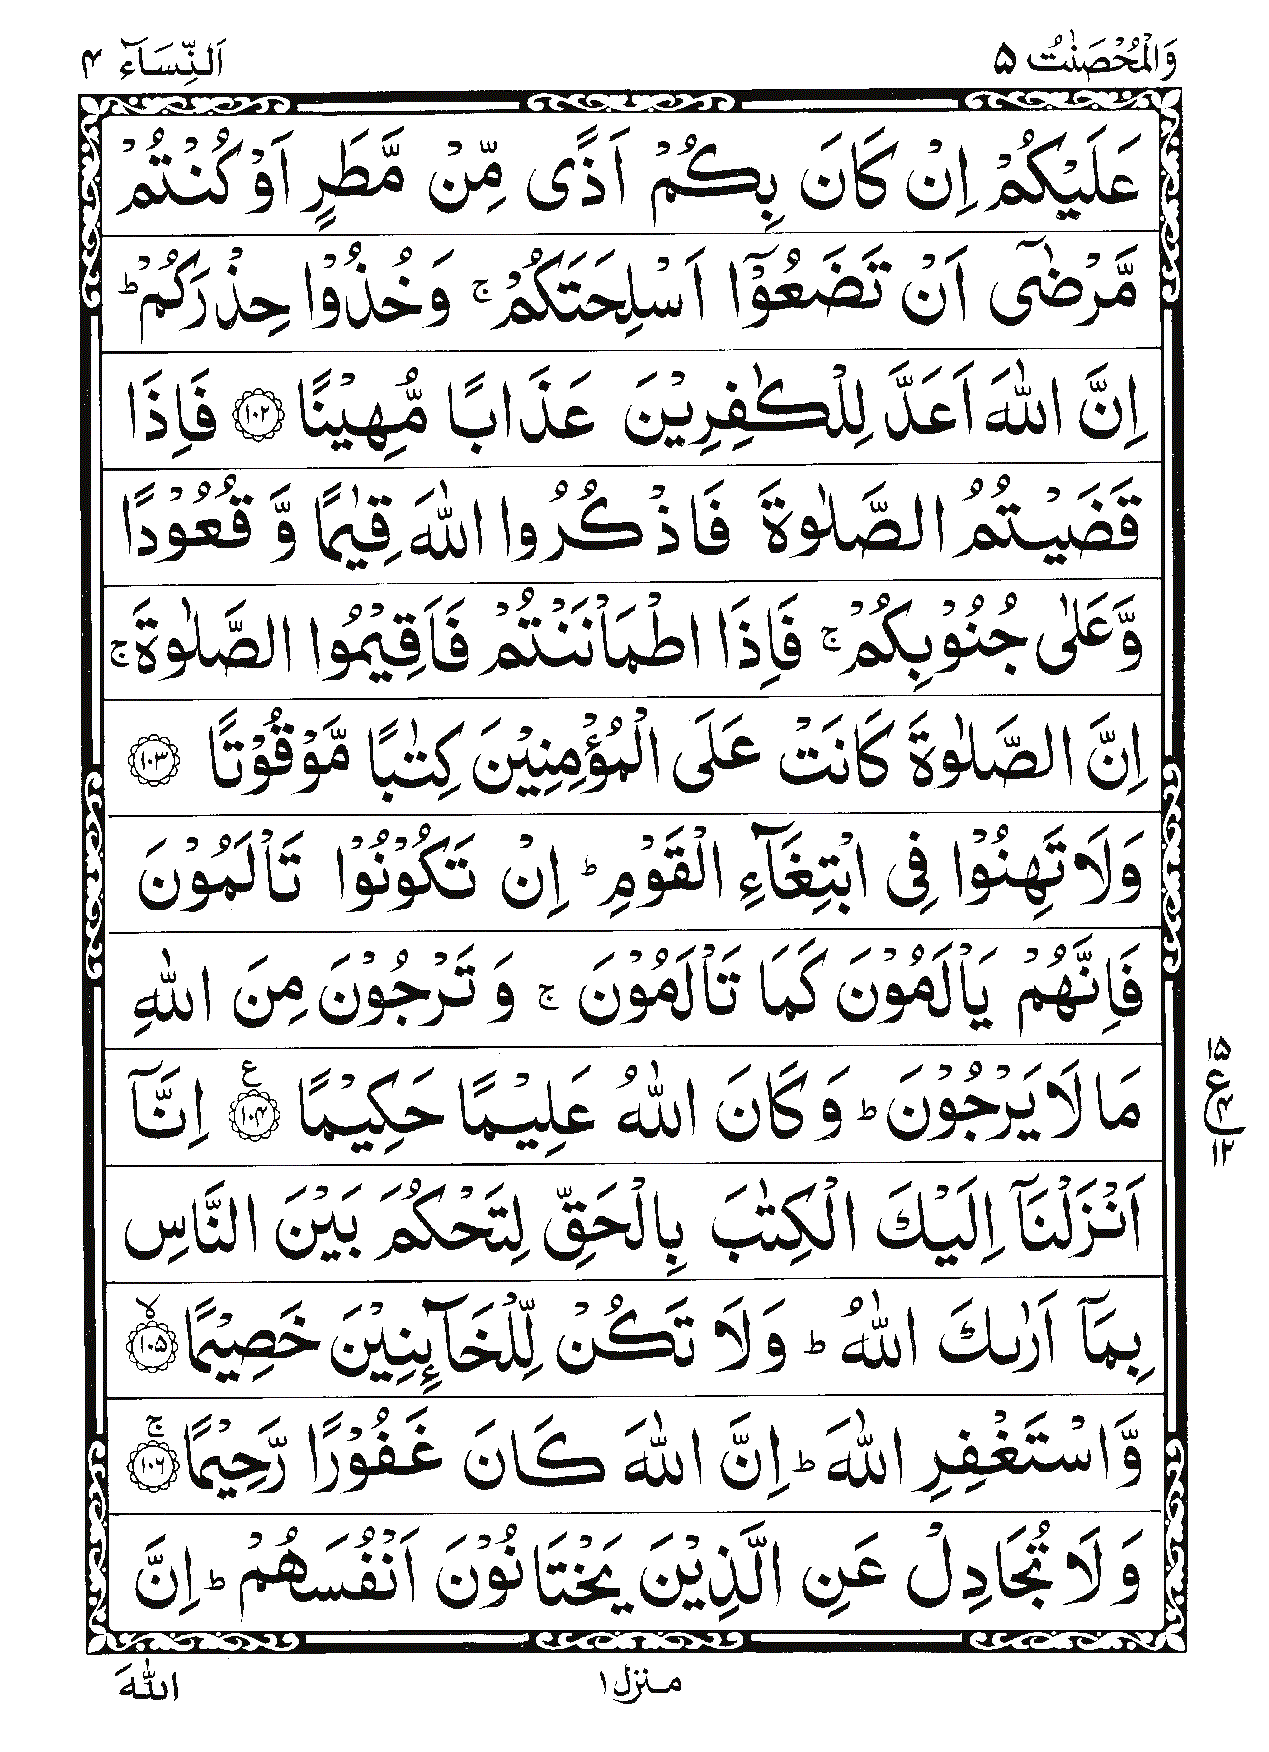 وَالْمُحْصَنٰتُ ۵
اَلنِّسَآء ۴
عَلَيْكُمْ اِنْ كَانَ بِكُمْ اَذًى مِّنْ مَّطَرٍ اَوْ كُنْتُمْ
مَّرْضٰۤى اَنْ تَضَعُوْۤا اَسْلِحَتَكُمْ ۚ وَخُذُوْا حِذْرَكُمْ ؕ
اِنَّ اللّٰهَ اَعَدَّ لِلْكٰفِرِيْنَ عَذَابًا مُّهِيْنًا ۝۱۰۲ فَاِذَا
قَضَيْتُمُ الصَّلٰوةَ فَاذْكُرُوا اللّٰهَ قِيٰمًا وَّ قُعُوْدًا
وَّعَلٰى جُنُوْبِكُمْ ۚ فَاِذَا اطْمَاْنَنْتُمْ فَاَقِيْمُوا الصَّلٰوةَ ۚ
اِنَّ الصَّلٰوةَ كَانَتْ عَلَى الْمُؤْمِنِيْنَ كِتٰبًا مَّوْقُوْتًا ۝۱۰۳
وَلَا تَهِنُوْا فِى ابْتِغَآءِ الْقَوْمِ ؕ اِنْ تَكُوْنُوْا تَاْلَمُوْنَ
فَاِنَّهُمْ يَاْلَمُوْنَ كَمَا تَاْلَمُوْنَ ۚ وَ تَرْجُوْنَ مِنَ اللّٰهِ
مَا لَا يَرْجُوْنَ ؕ وَ كَانَ اللّٰهُ عَلِيْمًا حَكِيْمًا ۝۱۰۴ ع اِنَّاۤ
اَنْزَلْنَاۤ اِلَيْكَ الْكِتٰبَ بِالْحَقِّ لِتَحْكُمَ بَيْنَ النَّاسِ
بِمَاۤ اَرٰىكَ اللّٰهُ ؕ وَلَا تَكُنْ لِّلْخَآئِنِيْنَ خَصِيْمًا ۙ۝۱۰۵
وَّاسْتَغْفِرِ اللّٰهَ ؕ اِنَّ اللّٰهَ كَانَ غَفُوْرًا رَّحِيْمًا ۚ۝۱۰۶
وَلَا تُجَادِلْ عَنِ الَّذِيْنَ يَخْتَانُوْنَ اَنْفُسَهُمْ ؕ اِنَّ
۱۵
ع ۴
۱۲
منزل ۱
اللّٰهَ